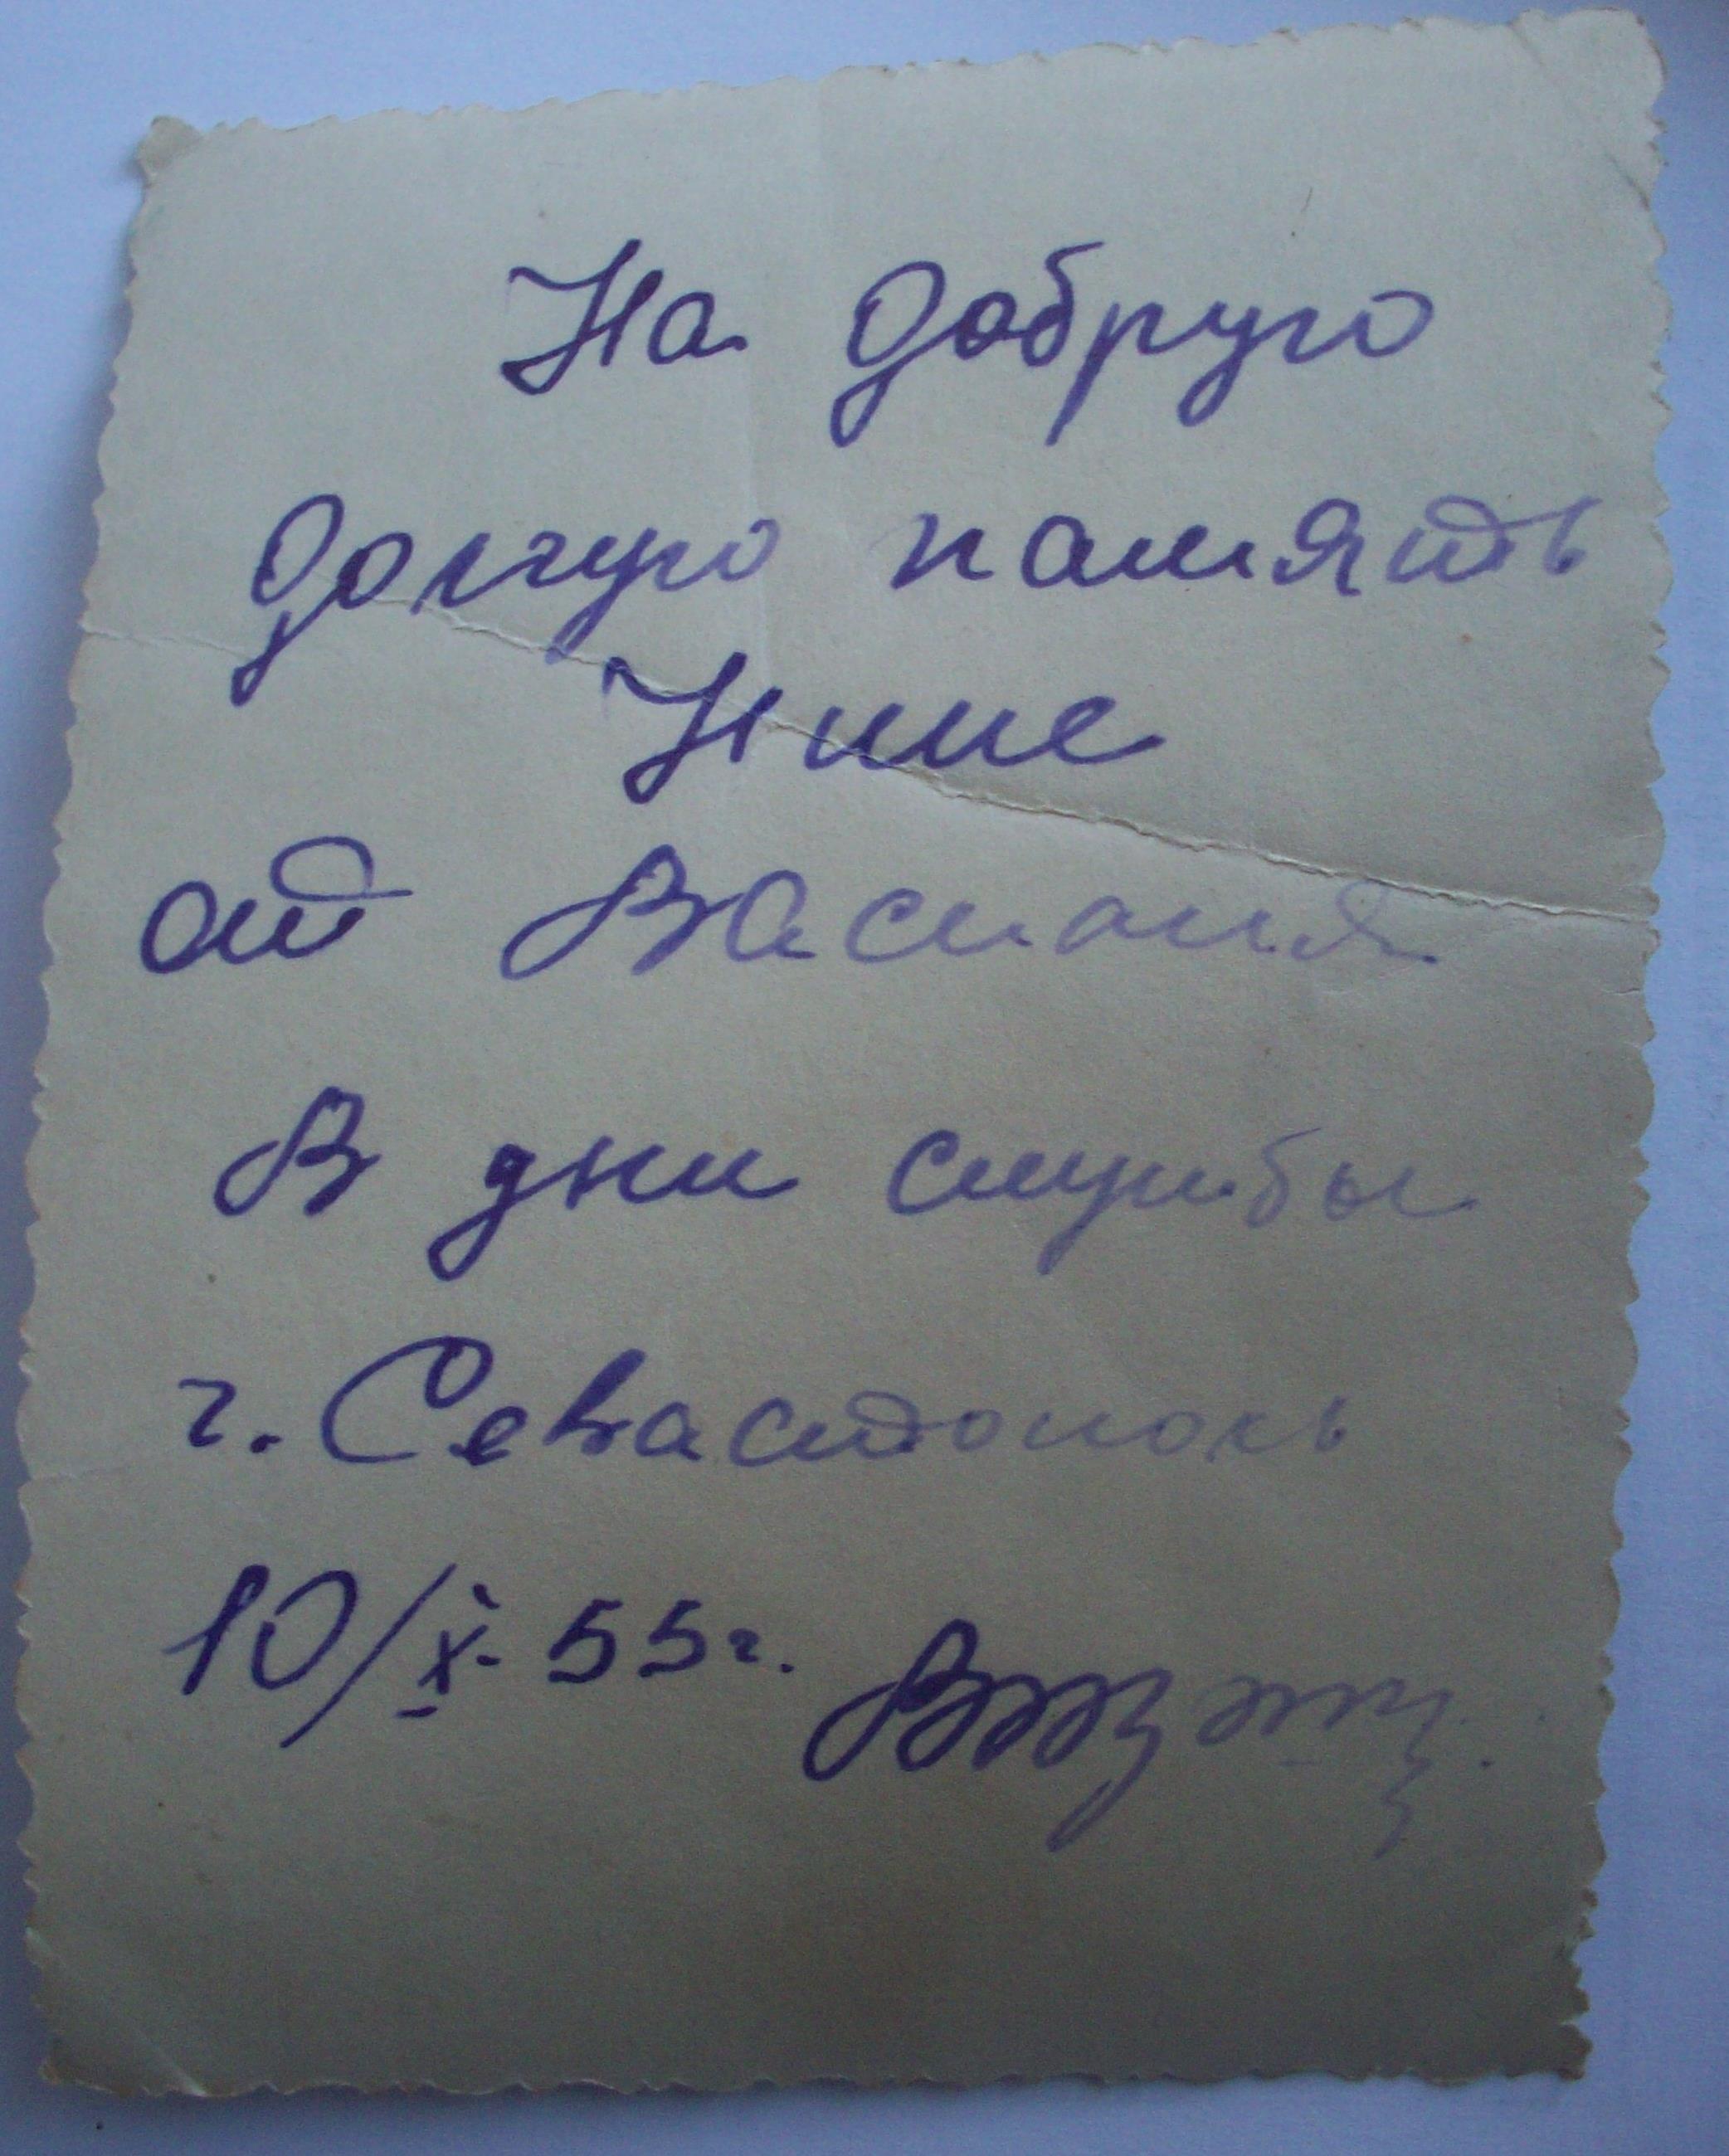 На добрую
долгую память
Нине
от Василия
В дни службы
г. Севастополь
10/X-55г.